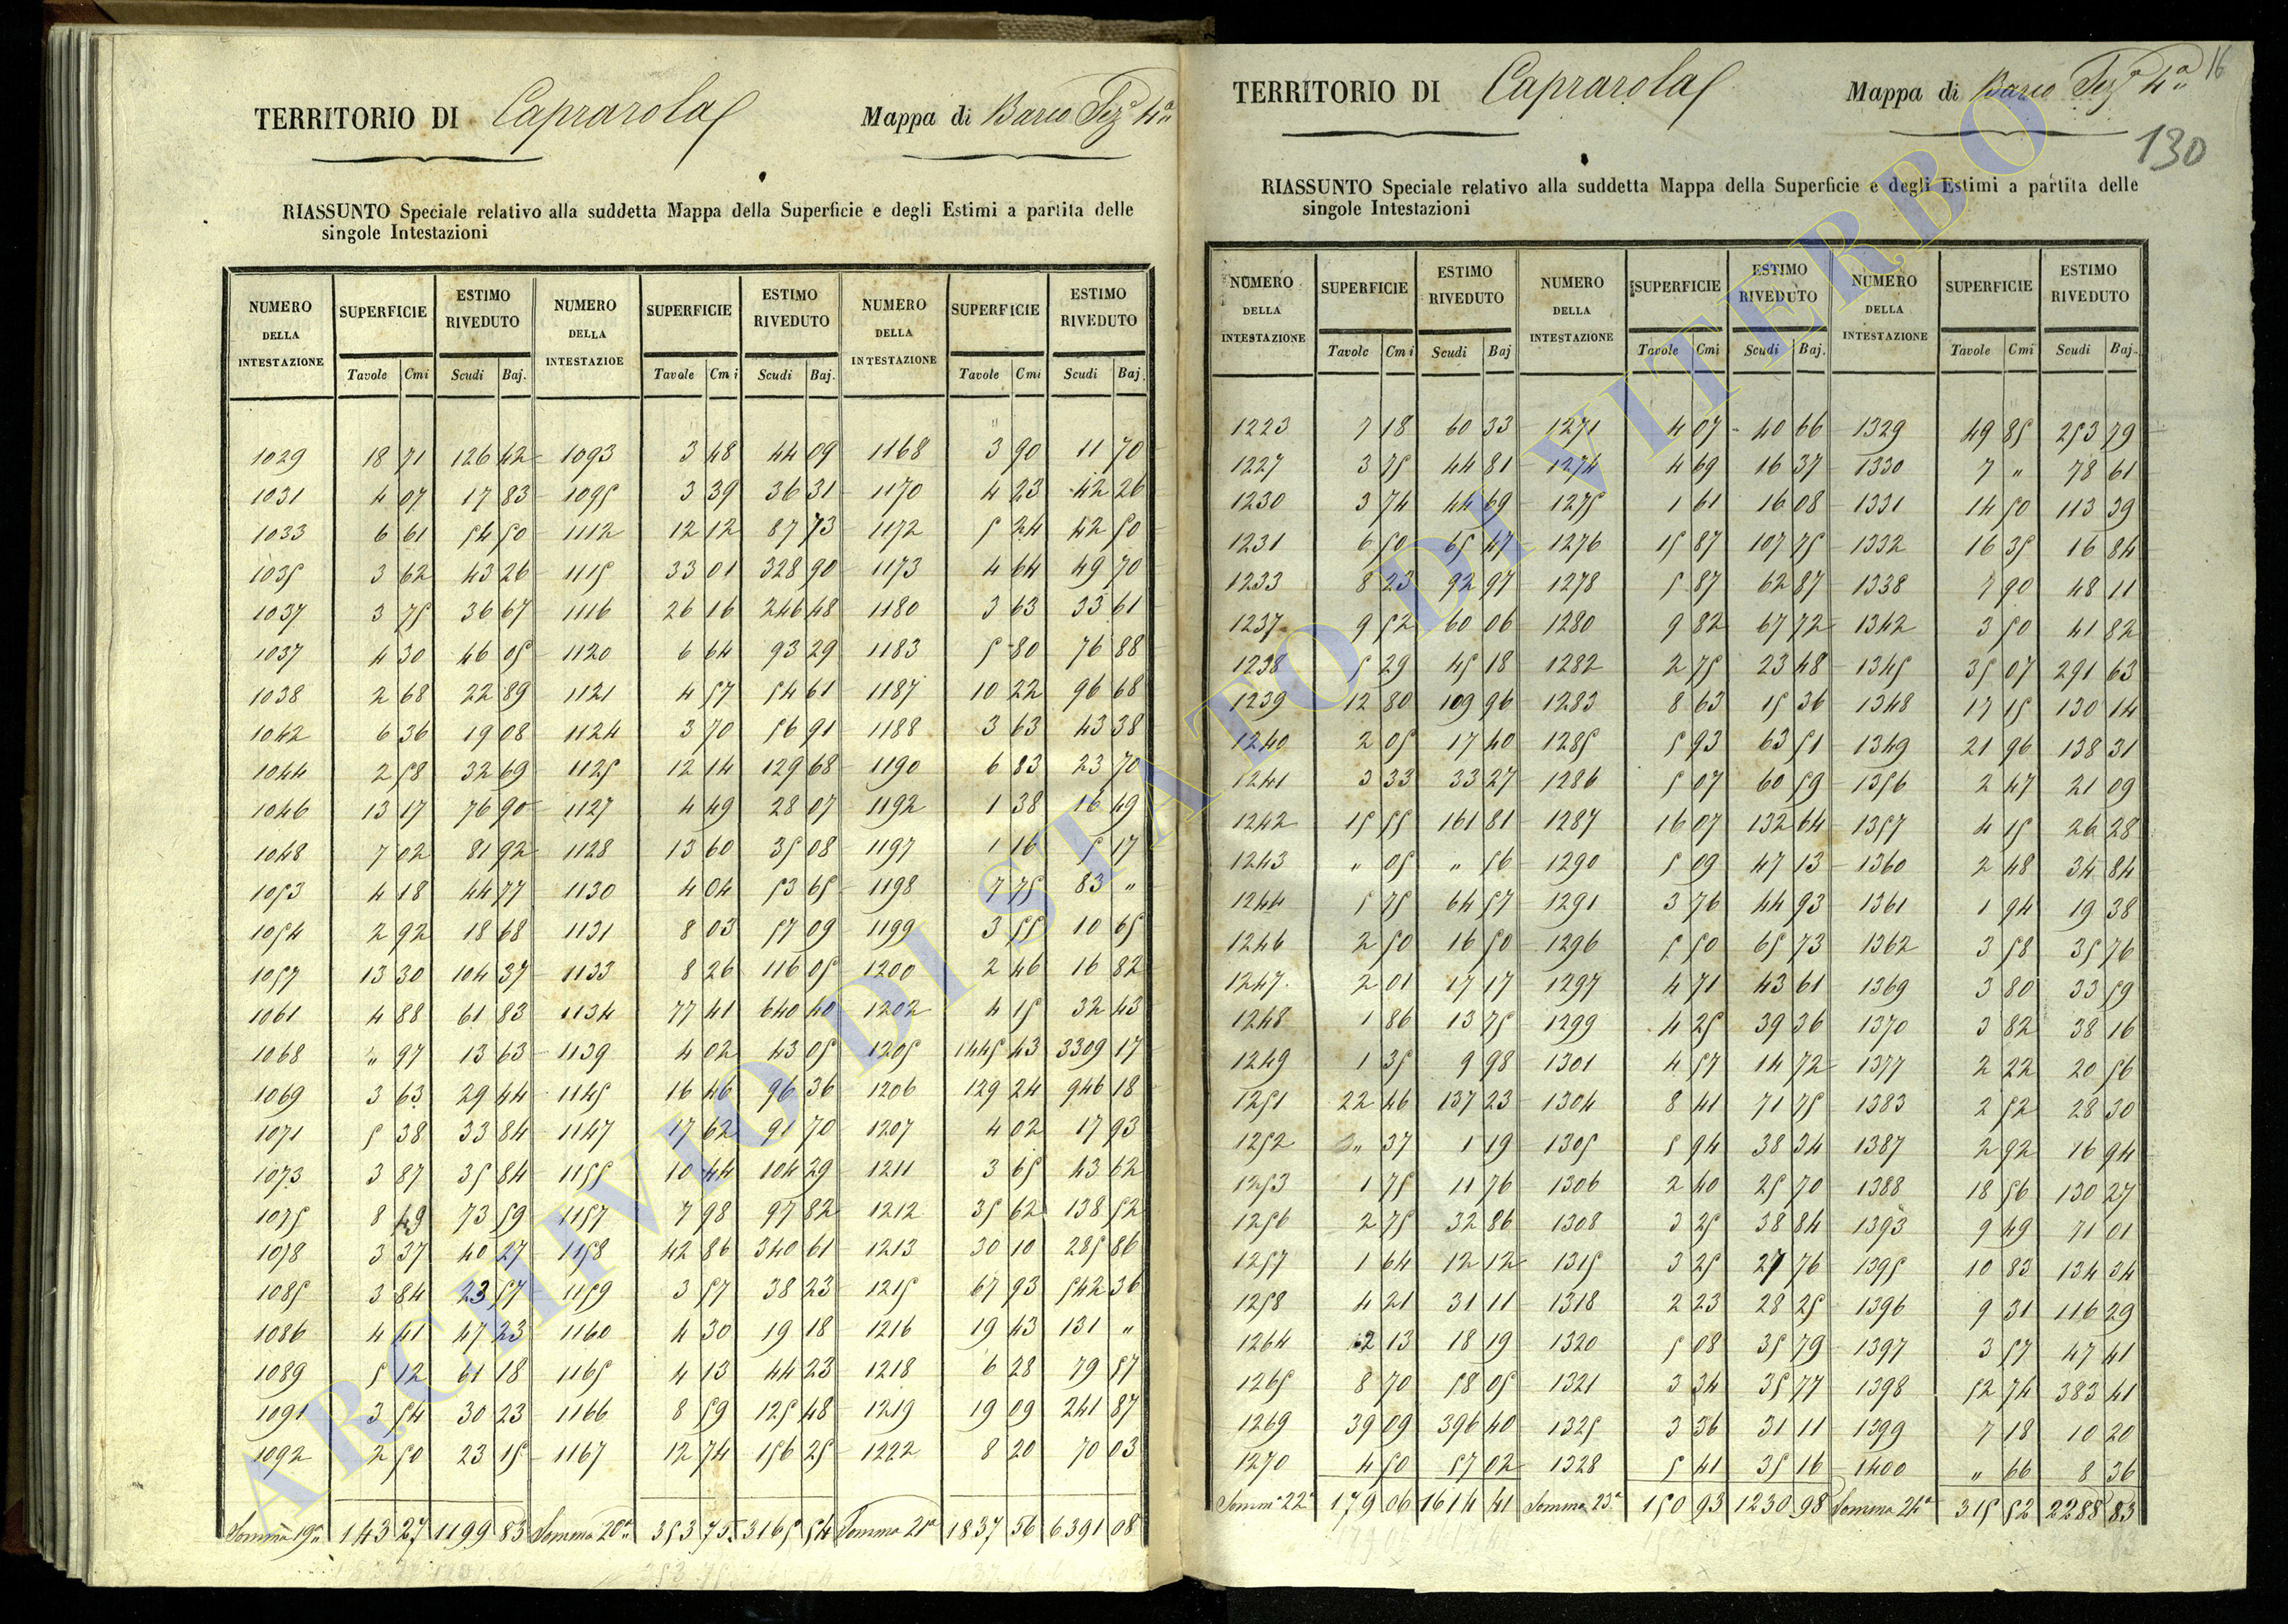 TERRITORIO DI Caprarola Mappa di Barco Sez.e 4a
RIASSUNTO Speciale relativo alla suddetta Mappa della Superficie e degli Estimi a partita delle
singole Intestazioni
NUMERO DELLA INTESTAZIONE SUPERFICIE ESTIMO RIVEDUTO NUMERO DELLA INTESTAZIOE SUPERFICIE ESTIMO RIVEDUTO NUMERO DELLA INTESTAZIONE SUPERFICIE ESTIMO RIVEDUTO
Tavole Cmi Scudi Baj. Tavole Cmi Scudi Baj. Tavole Cmi Scudi Baj.
1029 18 71 126 42 1093 3 48 44 09 1168 3 90 11 70
1031 4 07 17 83 1095 3 39 36 31 1170 4 23 42 26
1033 6 61 54 50 1112 12 12 87 73 1172 5 24 42 50
1035 3 62 43 26 1115 33 01 328 90 1173 4 64 49 70
1037 3 75 36 67 1116 26 16 246 48 1180 3 63 33 61
1037 4 30 46 05 1120 6 64 93 29 1183 5 80 76 88
1038 2 68 22 89 1121 4 57 54 61 1187 10 22 96 68
1042 6 36 19 08 1124 3 70 56 91 1188 3 63 43 38
1044 2 58 32 69 1125 12 14 129 68 1190 6 83 23 70
1046 13 17 76 90 1127 4 49 28 07 1192 1 38 16 49
1048 7 02 81 92 1128 13 60 35 08 1197 1 16 5 17
1053 4 18 44 77 1130 4 04 53 65 1198 7 75 83 "
1054 2 92 18 68 1131 8 03 57 09 1199 3 55 10 65
1057 13 30 104 37 1133 8 26 116 05 1200 2 46 16 82
1061 4 88 61 83 1134 77 41 640 40 1202 4 15 32 43
1068 " 97 13 63 1139 4 02 43 05 1205 1445 43 3309 17
1069 3 63 29 44 1145 16 46 96 36 1206 129 24 946 18
1071 5 38 33 84 1147 17 62 91 70 1207 4 02 17 93
1073 3 87 35 84 1155 10 44 104 29 1211 3 65 43 62
1075 8 49 73 59 1157 7 98 97 82 1212 35 62 138 52
1078 3 37 40 27 1158 42 86 340 61 1213 30 10 285 86
1085 3 84 23 57 1159 3 57 38 23 1215 67 93 542 36
1086 4 41 47 23 1160 4 30 19 18 1216 19 43 131 "
1089 5 12 61 18 1165 4 13 44 23 1218 6 28 79 57
1091 3 54 30 23 1166 8 59 125 48 1219 19 09 241 87
1092 2 50 23 15 1167 12 74 156 25 1222 8 20 70 03
Somma 19a 143 27 1199 83 Somma 20a 353 75 3165 54 Somma 21a 1837 56 6391 08
16
TERRITORIO DI Caprarola Mappa di Barco Sez.e 4a
130
RIASSUNTO Speciale relativo alla suddetta Mappa della Superficie e degli Estimi a partita delle
singole Intestazioni
NUMERO DELLA INTESTAZIONE SUPERFICIE ESTIMO RIVEDUTO NUMERO DELLA INTESTAZIONE SUPERFICIE ESTIMO RIVEDUTO NUMERO DELLA INTESTAZIONE SUPERFICIE ESTIMO RIVEDUTO
Tavole Cmi Scudi Baj Tavole Cmi Scudi Baj. Tavole Cmi Scudi Baj.
1223 7 18 60 33 1271 4 07 40 66 1329 49 85 253 79
1227 3 75 44 81 1274 4 69 16 37 1330 7 " 78 61
1230 3 74 44 69 1275 1 61 16 08 1331 14 50 113 39
1231 6 50 65 47 1276 15 87 107 75 1332 16 35 16 84
1233 8 23 92 97 1278 5 87 62 87 1338 7 90 48 11
1237 9 52 60 06 1280 9 82 67 72 1342 3 50 41 82
1238 5 29 45 18 1282 2 75 23 48 1345 35 07 291 63
1239 12 80 109 96 1283 8 63 15 36 1348 17 15 130 14
1240 2 05 17 40 1285 5 93 63 51 1349 21 96 138 31
1241 3 33 33 27 1286 5 07 60 59 1356 2 47 21 09
1242 15 55 161 81 1287 16 07 132 64 1357 4 15 26 28
1243 " 05 " 56 1290 5 09 47 13 1360 2 48 34 84
1244 5 75 64 57 1291 3 76 44 93 1361 1 94 19 38
1246 2 50 16 50 1296 5 50 65 73 1362 3 58 35 76
1247 2 01 17 17 1297 4 71 43 61 1369 3 80 33 59
1248 1 86 13 75 1299 4 25 39 36 1370 3 82 38 16
1249 1 35 9 98 1301 4 57 14 72 1377 2 22 20 56
1251 22 46 137 23 1304 8 41 71 75 1383 2 52 28 30
1252 " 37 1 19 1305 5 94 38 34 1387 2 92 16 94
1253 1 75 11 76 1306 2 40 25 70 1388 18 56 130 27
1256 2 75 32 86 1308 3 25 38 84 1393 9 49 71 01
1257 1 64 12 12 1315 3 25 27 76 1395 10 83 134 34
1258 4 21 31 11 1318 2 23 28 25 1396 9 31 116 29
1264 2 13 18 19 1320 5 08 35 79 1397 3 57 47 41
1265 8 70 58 05 1321 3 34 35 77 1398 52 74 383 41
1269 39 09 396 40 1325 3 36 31 11 1399 7 18 10 20
1270 4 50 57 02 1328 5 41 35 16 1400 " 66 8 36
Somma 22a 179 06 1614 41 Somma 23a 150 93 1230 98 Somma 24a 315 52 2288 83
ARCHIVIO DI STATO DI VITERBO